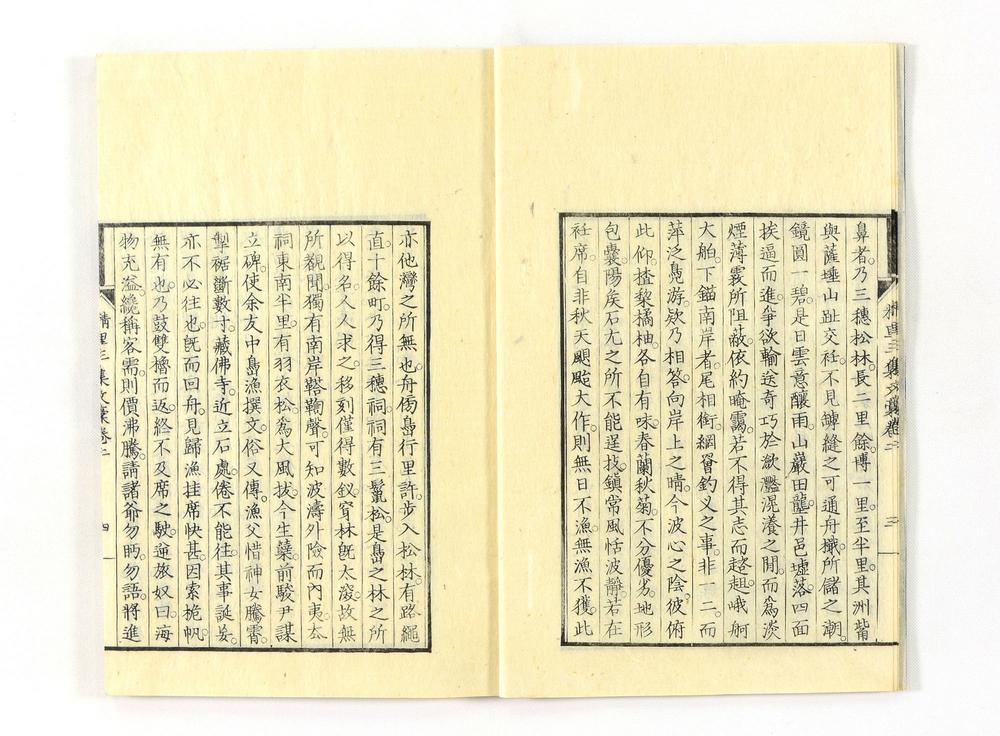 鼻者。乃三穗松林。長二里餘。博一里。至半里。其洲觜
與薩埵山趾交衽。不見罅縫之可通舟檝。所儲之潮。
鏡圓一碧。是日雲意釀雨。山巖田壟井邑墟落。四面
挨逼而進。爭欲輸送奇巧於瀲灩滉瀁之間。而爲淡
煙薄霧所阻蔽。依約晻靄。若不得其志而趑趄。峨舸
大舶。下錨南岸者。尾相銜。網罾釣义之事。非一二。而
萍泛鳧游。欵乃相答。向岸上之晴。今波心之陰。彼俯
此仰。楂棃橘柚。各自有味。春蘭秋菊。不分優劣。地形
包囊。陽矦石尤之所不能逞技。鎭常風恬波靜。若在
衽席。自非秋天颶颱大作。則無日不漁。無漁不獲。此
精里三集文稾卷二
三
亦他灣之所無也。舟傍島行里許。步入松林。有路繩
直。十餘町。乃得三穗祠。祠有三鬣松。是島之林之所
以得名。人人求之。移刻僅得數釵。賓林旣太深。故無
所觀聞。獨有南岸鞳鞫聲。可知波濤外險而內夷。本
祠東南半里。有羽衣松。爲大風拔。今生蘖。前駿尹謀
立碑。使余友中島漁撰文。俗又傳。漁父惜神女騰霄。
掣裾斷數寸。藏佛寺。近立石處。倦不能往。其事誕妄。
亦不必往也。旣而回舟。見歸漁挂席快甚。因索桅帆。
無有也。乃鼓雙櫓而返。終不及席之駛。逆旅奴曰。海
物充溢。纔稱客需。則價沸騰。請諸爺勿眄。勿語。將進
精里三集文稾卷二
四